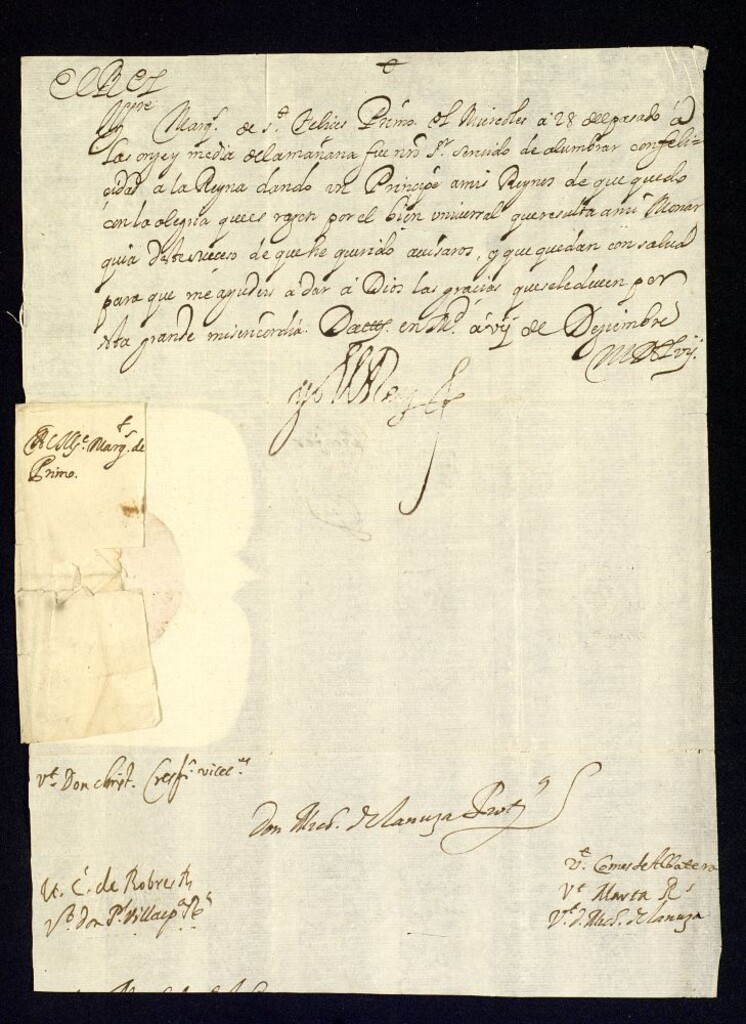 El Rey
Illre Marq. de S.t Felices Primo. El Miercoles a 28 del pasado á
las onze y media de la mañana fue nro Sr servido de alumbrar con feli-
cidad a la Reyna dando un Principe a mis Reynos de que quedo
con la alegria que es razon por el bien universal que resulta a mi Monar
quia deste suceso de que he querido avisaros, y que quedan con salud
para que me ayudeis a dar a Dios las gracias que se le deven por
esta grande misericordia. Datt. en Md. a vij de Deziembre
MDCLvij.
yo el Rey
Marq. de
Primo.
Vt Don Christ. Crespi vicec.
Don Mich. de lanuza Prot.
Vt. C. de Robres
Vt. Comes de Albatera
Vt Marta R.s
Vt Don Pl. Villacpa. Rs
Vt. d. Mich. de lanuza